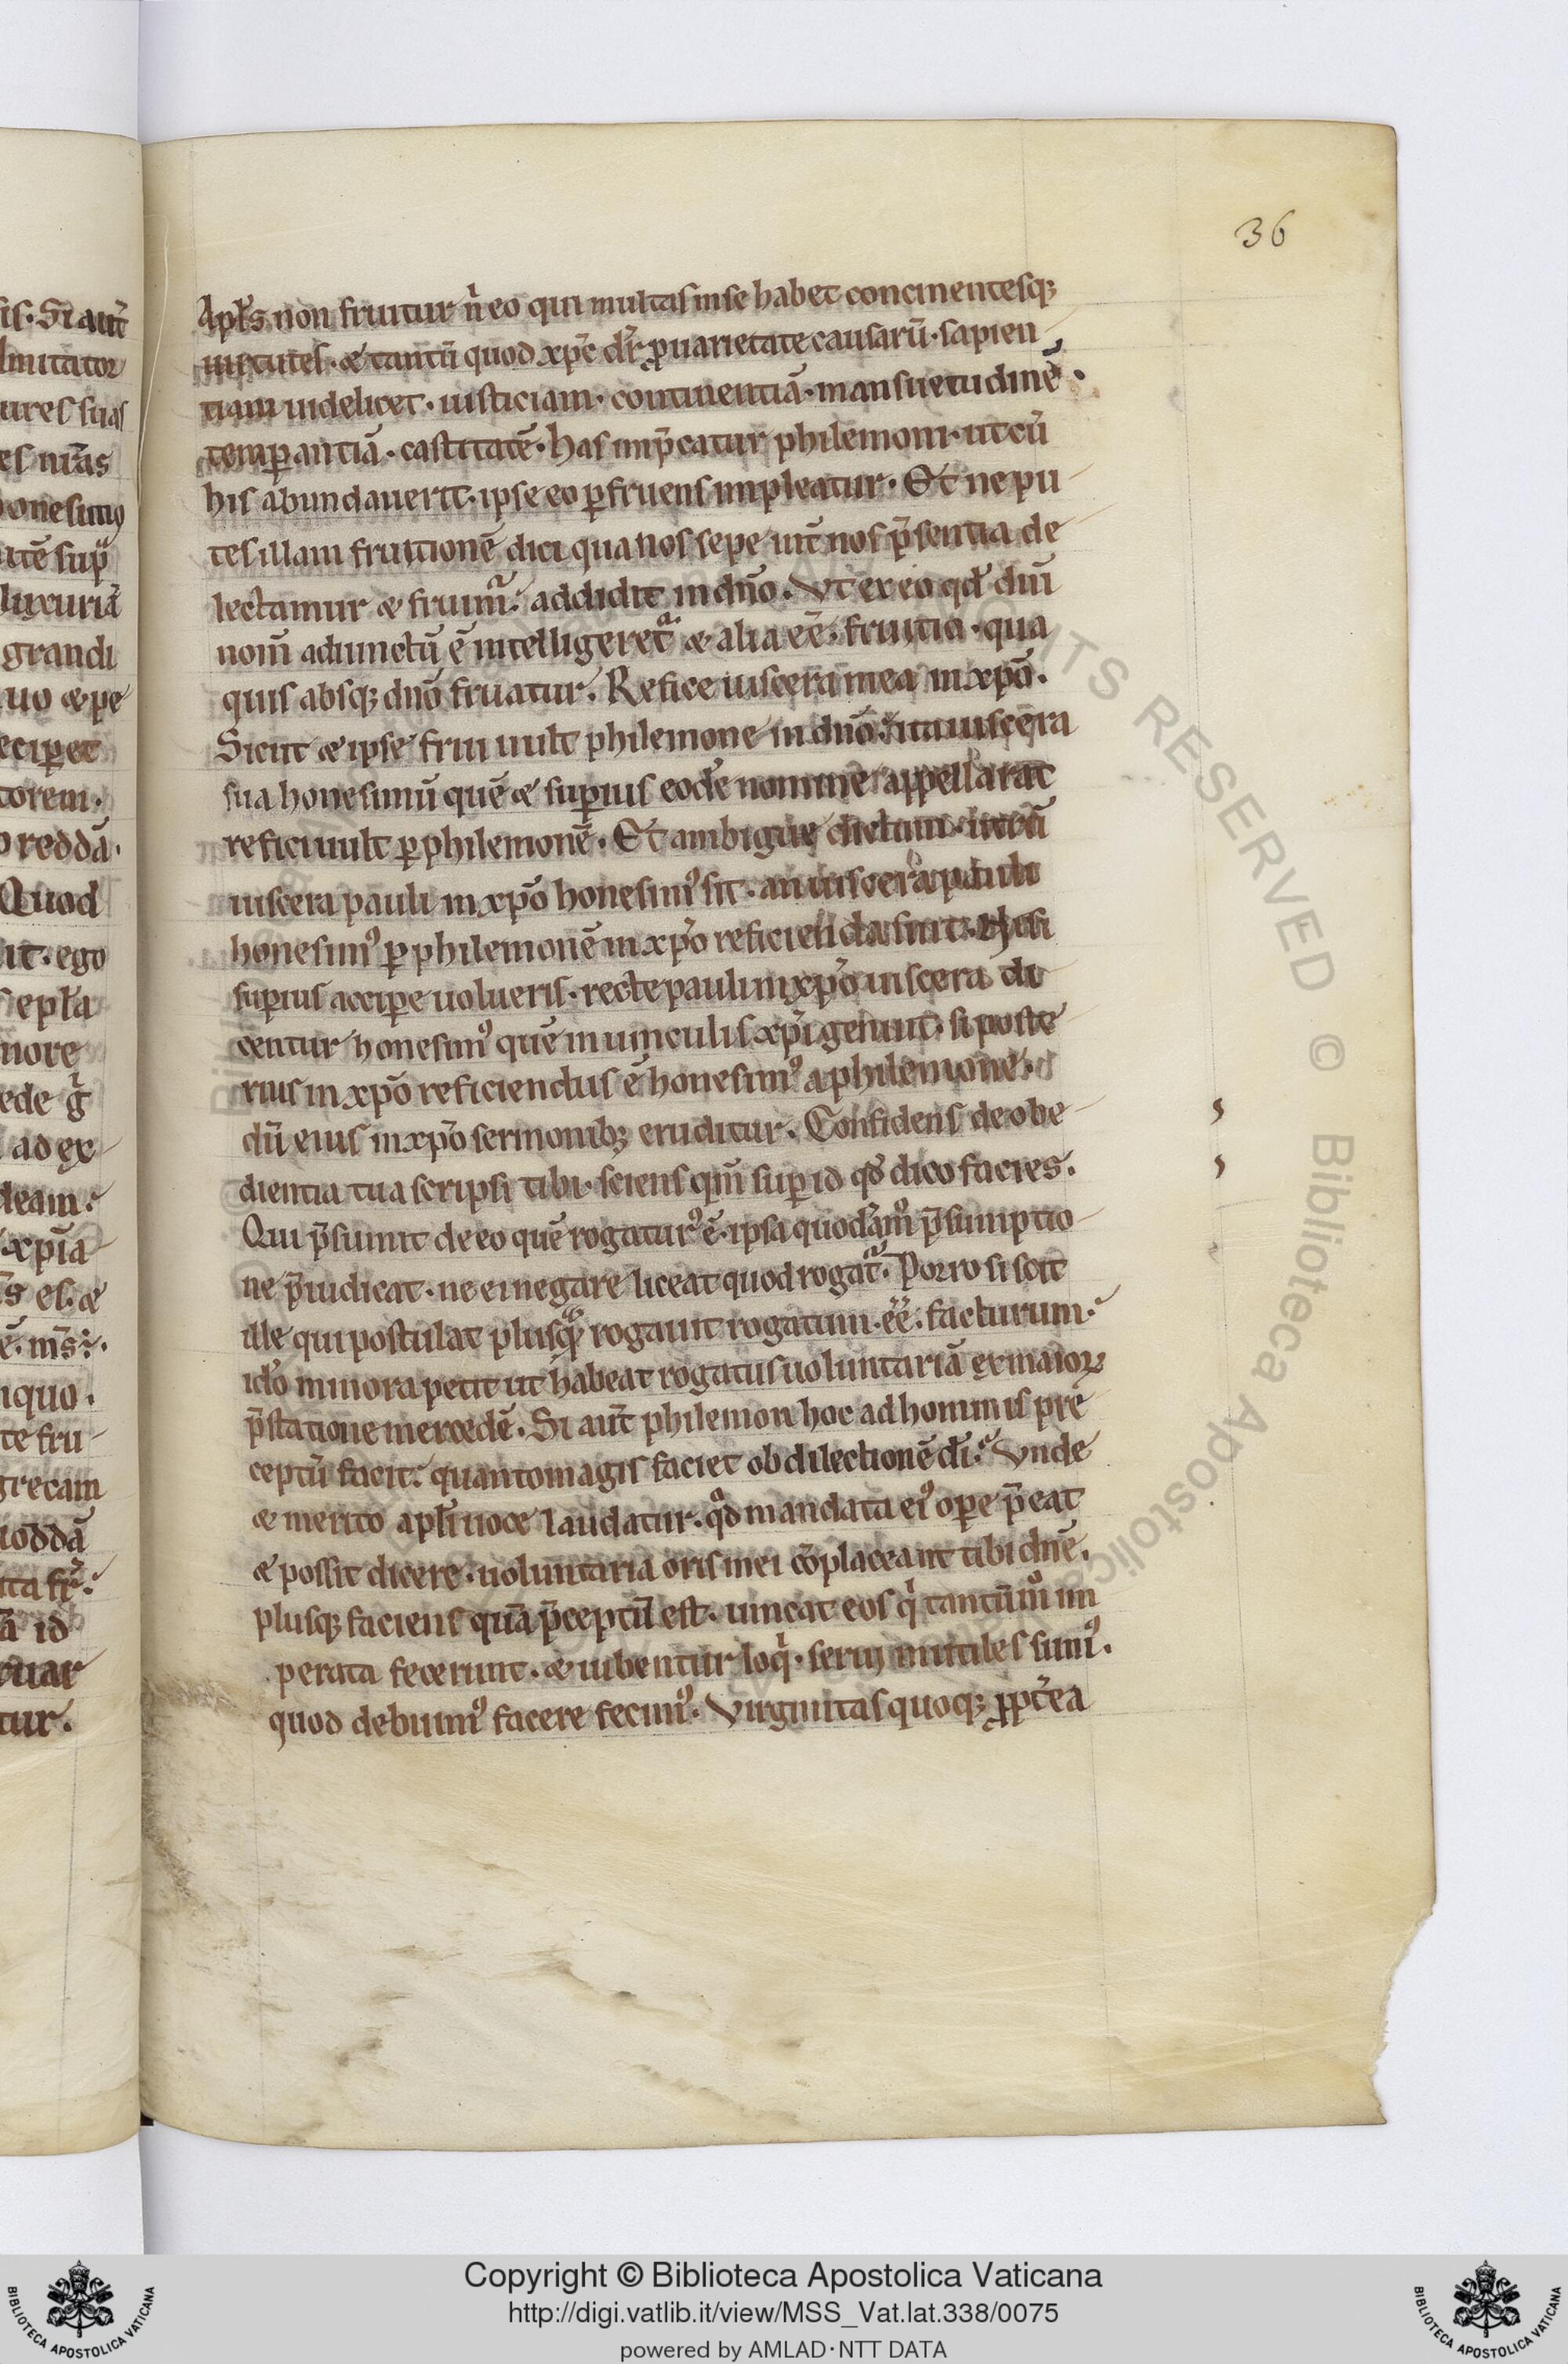 36
Apl̃s non fruitur n̄ eo qui multas in se habet concinentesq;
uirtutes. & tantū quod xp̄c dr̄ ꝓ uarietate causarū. sapien
tiam uidelicet. iusticiam. continentiā. mansuetudinē.
temꝑantiā. castitatē. has imp̄catur philemoni. ut cū
his abundauerit. ipse eo ꝑfruens impleatur. Et ne pu
tes illam fruitionē dici qua nos sepe uit̄ nos p̄sentia de
lectamur & fruim̄. addidit in dn̄o. Vt ex eo qđ dn̄i
nom̄ adiunctū ē intelligeret̄ & alia eē. fruitio. qua
quis absq; dn̄o fruatur. Refice uiscera mea in xp̄o.
Sicut & ipse frui uult philemone in dn̄o. ita uiscera
sua honesimū quē & suꝑius eodē nomine appellarat
refici uult ꝑ philemonē. Et ambigue dictum. utrū
uiscera pauli in xp̄o honesimꝰ sit. an uiscera pauli
honesimꝰ ꝑ philemonē in xp̄o reficienda sint. Qđ si
suꝑius accipe uolueris. recte pauli in xp̄o uiscera di
centur honesimꝰ quē in uinculis xp̄i genuit. si poste
rius in xp̄o reficiendus ē honesimꝰ a philemone.
dū eius in xp̄o sermonib; eruditur. Confidens de obe
dientia tua scripsi tibi. sciens qm̄ suꝑ id qđ dico facies.
Qui p̄sumit de eo quē rogaturꝰ ē. ipsa quodāmͦ p̄sumptio
ne p̄iudicat. ne ei negare liceat quod rogat̄. Porro si scit
ille qui postulat plusq̄ rogauit rogatum. eē. facturum.
idō minora petit ut habeat rogatus uoluntariā ex maioꝝ
p̄statione mercedē. Si aut̄ philemon hoc ad hominis pre
ceptū facit. quanto magis faciet ob dilectionē dī. Vnde
& merito apl̃i uoce laudatur. qđ mandata eiꝰ oꝑe p̄eat
& possit dicere. uoluntaria oris mei cōplaceant tibi dn̄e.
plusq; faciens quā p̄ceptū est. uincat eos qͥ tantūmͦ im
perata fecerunt. & iubentur loqͥ. serui inutiles sumꝰ.
quod debuimꝰ facere fecimꝰ. Virginitas quoq; ꝓpt̄ea
Copyright © Biblioteca Apostolica Vaticana
http://digi.vatlib.it/view/MSS_Vat.lat.338/0075
powered by AMLAD·NTT DATA